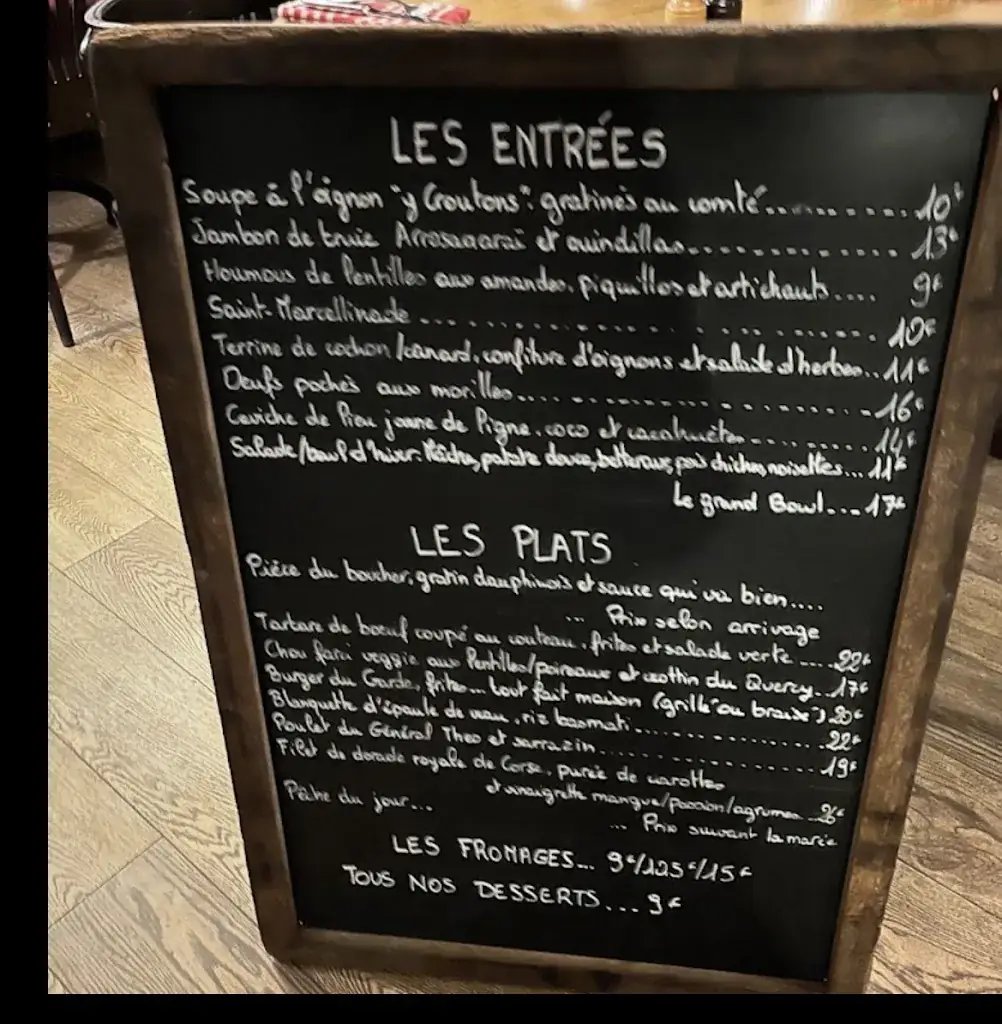 LES ENTRÉES
Soupe à l'oignon "y Croutons": gratinés au comté............10€
Jambon de truie Arrosagaraï et guindillas..............13€
Houmous de lentilles aux amandes, piquillos et artichauts.... 9€
Saint-Marcellinade....................10€
Terrine de cochon/canard, confiture d'oignons et salade d'herbes..11€
Oeufs pochés aux morilles....................16€
Ceviche de lieu jaune de ligne, coco et cacahuètes..........14€
Salade/bowl d'hiver: Mâche, patate douce, betterave, pois chiches, noisettes...11€
Le grand Bowl...17€
LES PLATS
Pièce du boucher, gratin dauphinois et sauce qui va bien....
... Prix selon arrivage
Tartare de boeuf coupé au couteau, frites et salade verte....22€
Chou farci veggie aux lentilles/poireaux et cothin du Quercy..17€
Burger du Garde, frites... tout fait maison (grillé ou braisé) 20€
Blanquette d'épaule de veau, riz basmati...............22€
Poulet du Général Theo et sarrazin...............19€
Filet de dorade royale de Corse, purée de carottes
et vinaigrette mangue/passion/agrumes...26€
Pêche du jour...
... Prix suivant la marée
LES FROMAGES... 9€/125€/15€
TOUS NOS DESSERTS...9€